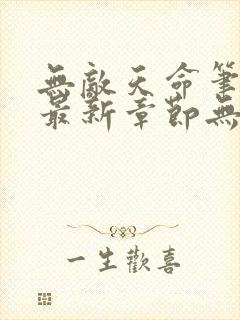 無敵天命筆
最新章節無
一生歡喜